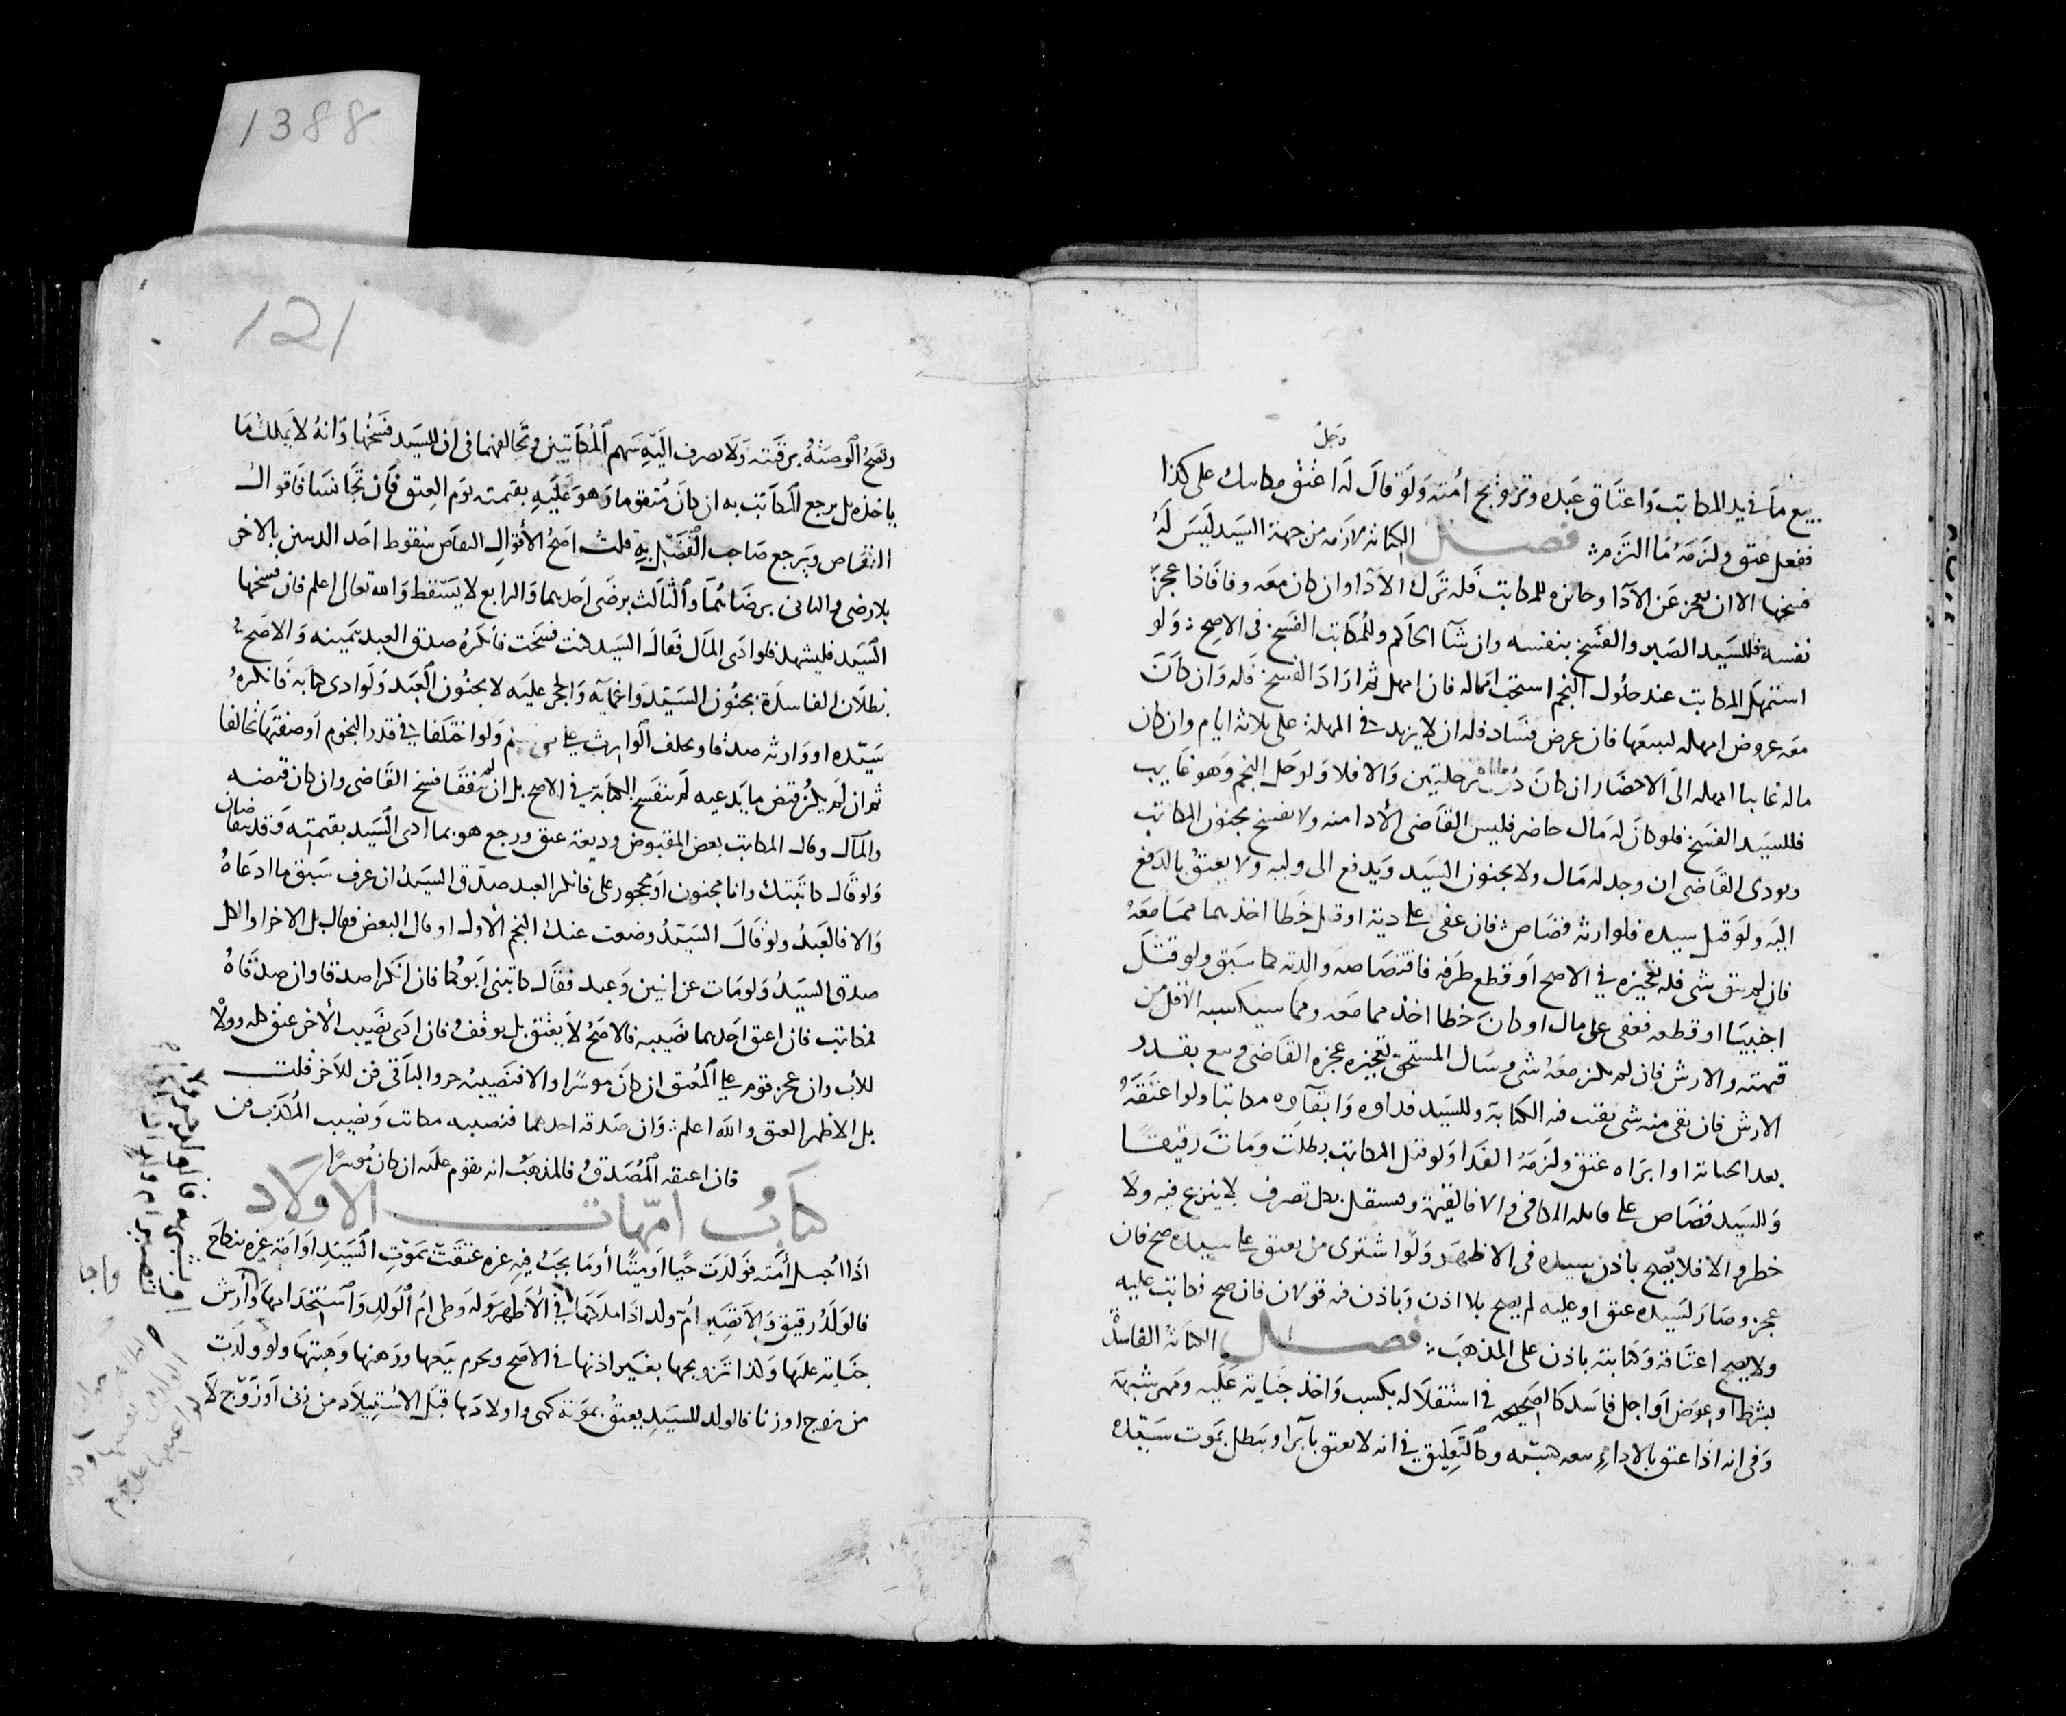 رجل
بيع ما في يد المكاتب واعتاق عبده وتزويج أمته ولو قال له اعتق مكاتبك على كذا
ففعل عتق ولزمه ما التزم فصل الكتابة لازمة من جهة السيد ليس له
فسخها الا ان يعجز عن الآداء وجائزة للمكاتب فله ترك الاداء وان كان معه وفا فاذا عجز
نفسه فللسيد الصبر والفسخ بنفسه وان شآ الحاكم وللمكاتب الفسخ في الاصح ولو
استمهل المكاتب عند حلول النجم استحب امهاله فان امهل ثم اراد الفسخ فله وان كان
معه عروض امهله لبيعها فان عرض كساد فله ان لا يزيد في المهلة على ثلاثة ايام وان كان
ماله غايبا امهله الى الاحضار ان كان دون مرحلتين والا فلا ولو حل النجم وهو غايب
فللسيد الفسخ فلو كان له مال حاضر فليس للقاضي الأدا منه ولا تفسخ بجنون المكاتب
ويودى القاضي ان وجد له مال ولا بجنون السيد ويدفع الى وليه ولا يعتق بالدفع
اليه ولو قتل سيده فلوارثه قصاص فان عفى على دية او قتل خطا اخذها مما معه
فان لم يكن شى فله تعجيزه في الاصح او قطع طرفه فاقتصاصه والدية كما سبق ولو قتل
اجنبيا او قطعه فعفى على مال او كان خطا اخذ مما معه ومما سيكسبه الاقل من
قيمته والارش فان لم يكن معه شى وسال المستحق تعجيزه عجزه القاضي وبيع بقدر
الارش فان بقى منه شى بقيت فيه الكتابة وللسيد فداوه وابقآوه مكاتبا ولو اعتقه
بعد الجناية او ابراه عتق ولزمه الفدا ولو قتل المكاتب بطلت ومات رقيقا
وللسيد قصاص على قاتله المكافى والا فالقيمة ويستقل بكل تصرف لا تبرع فيه ولا
خطر والا فلا يصح باذن سيده في الاظهر ولو اشترى من يعتق على سيده صح فان
عجز وصار لسيده عتق او عليه لم يصح بلا اذن وباذن فيه قولان فان صح فكاتب عليه
ولا يصح اعتاقه وكتابته باذن على المذهب فصل الكتابة الفاسدة
بشرط او عوض او اجل فاسد كالصحيحة في استقلاله بكسب واخذ جناية عليه ومهر شبهة
وفي انه اذا عتق بالاداء يتبعه كسبه وكالتعليق في انه لا يعتق بآبرآ وتبطل بموت سيده
1388
121
وتصح الوصية برقبته ولا يصرف اليه سهم المكاتبين وتخالفهما في ان للسيد فسخها وانه لا يملك ما
ياخذه بل يرجع المكاتب به ان كان متقوما وهو عليه بقيمته يوم العتق فان تجانسا فاقوال
التقاص ويرجع صاحب الفضل به قلت اصح الأقوال التقاص سقوط احد الدينين بالاخر
بلا رضى والثاني برضائهما والثالث برضى احدهما والرابع لا يسقط والله تعالى اعلم فان فسخها
السيد فليشهد فلو ادى المال فقال السيد كنت فسخت فانكره صدق العبد بيمينه والاصح
بطلان الفاسدة بجنون السيد واغمايه والحجر عليه لا بجنون العبد ولو ادعى كتابة فانكره
سيده او وارثه صدقا ويحلف الوارث على نفي العلم ولو اختلفا في قدر النجوم او صفتها تحالفا
ثم ان لم يكن قبض ما يدعيه لم تنفسخ الكتابة في الاصح بل ان لم يتفقا فسخ القاضي وان كان قبضه
وقال المكاتب بعض المقبوض وديعة عتق ورجع هو بما ادى السيد بقيمته وقد يتقاصان
ولو قال كاتبتك وانا مجنون او محجور على فانكر العبد صدق السيد ان عرف سبق ما ادعاه
والا فالعبد ولو قال السيد وضعت عنك النجم الأول او قال البعض فقال بل الاخر او الكل
صدق السيد ولو مات عن ابنين وعبد فقال كاتبني ابوكما فان انكرا صدقا وان صدقاه
فمكاتب فان اعتق احدهما نصيبه فالاصح لا يعتق بل يوقف فان ادى نصيب الأخر عتق كله وولاؤه
للأب وان عجز قوم على المعتق ان كان موسرا والا فنصيبه حر والباقي قن للآخر قلت
بل الاظهر العتق والله اعلم وان صدقه احدهما فنصيبه مكاتب ونصيب المكذب قن
فان اعتقه المصدق فالمذهب انه يقوم عليه ان كان موسرا
كتاب امهات الاولاد
اذا احبل أمته فولدت حيا او ميتا أو ما يجب فيه غره عتقت بموت السيد او امة غيره بنكاح
فالولد رقيق ولا تصير أم ولد اذا ملكها في الأظهر وله وطى ام الولد واستخدامها وأرش
جناية عليها وكذا تزويجها بغير اذنها في الاصح ويحرم بيعها ورهنها وهبتها ولو ولدت
من زوج او زنا فالولد للسيد يعتق بموته كهى واولادها قبل الاستيلاد من زنى او زوج لا